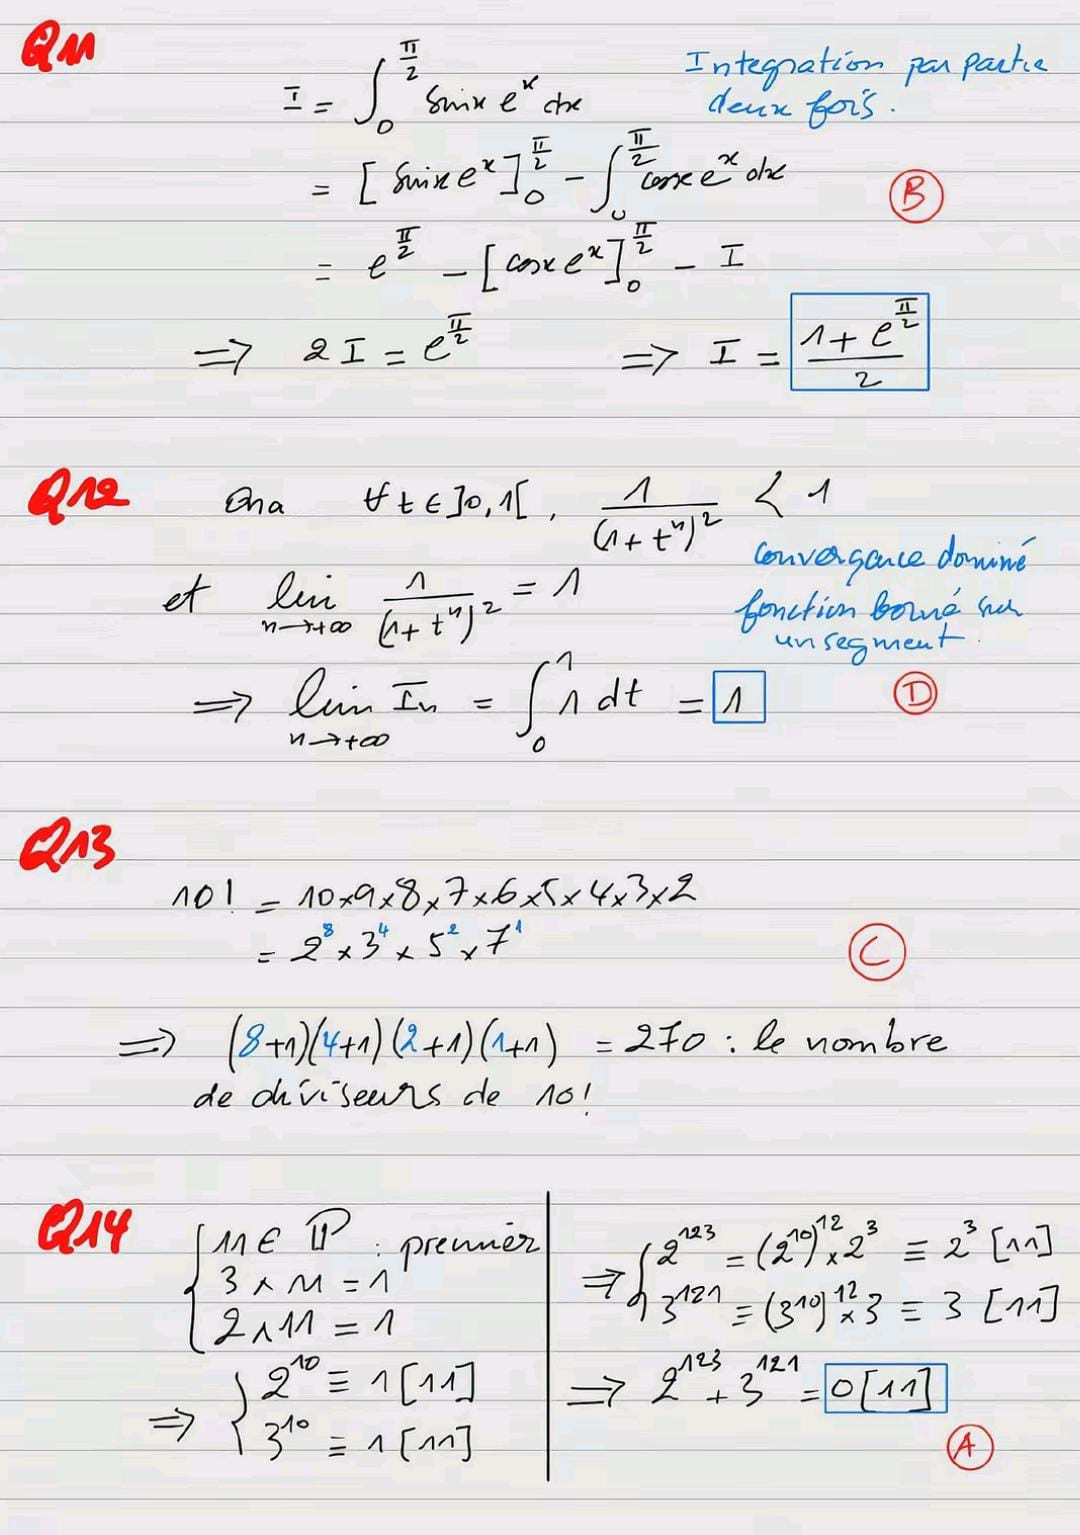 Q11
I = ∫₀^{π/2} sinx eˣ dx
Integration par partie
deux fois.
= [sinx eˣ]₀^{π/2} - ∫₀^{π/2} cosx eˣ dx
B
= e^{π/2} - [cosx eˣ]₀^{π/2} - I
⇒ 2I = e^{π/2} ⇒ I = (1 + e^{π/2})/2
Q12 Ona ∀ t ∈ ]0,1[, 1/(1+tⁿ)² < 1
convergance dominé
et lim_{n→+∞} 1/(1+tⁿ)² = 1
fonction borné sur
un segment.
⇒ lim_{n→+∞} Iₙ = ∫₀¹ 1 dt = 1
D
Q13
10! = 10×9×8×7×6×5×4×3×2
= 2⁸ × 3⁴ × 5² × 7¹
C
⇒ (8+1)(4+1)(2+1)(1+1) = 270 : le nombre
de diviseurs de 10!
Q14
{ 11 ∈ ℙ : premier
3 ∧ 11 = 1
2 ∧ 11 = 1
⇒ { 2¹⁰ ≡ 1 [11]
3¹⁰ ≡ 1 [11]
⇒ { 2¹²³ = (2¹⁰)¹² × 2³ ≡ 2³ [11]
3¹²¹ ≡ (3¹⁰)¹² × 3 ≡ 3 [11]
⇒ 2¹²³ + 3¹²¹ = 0 [11]
A